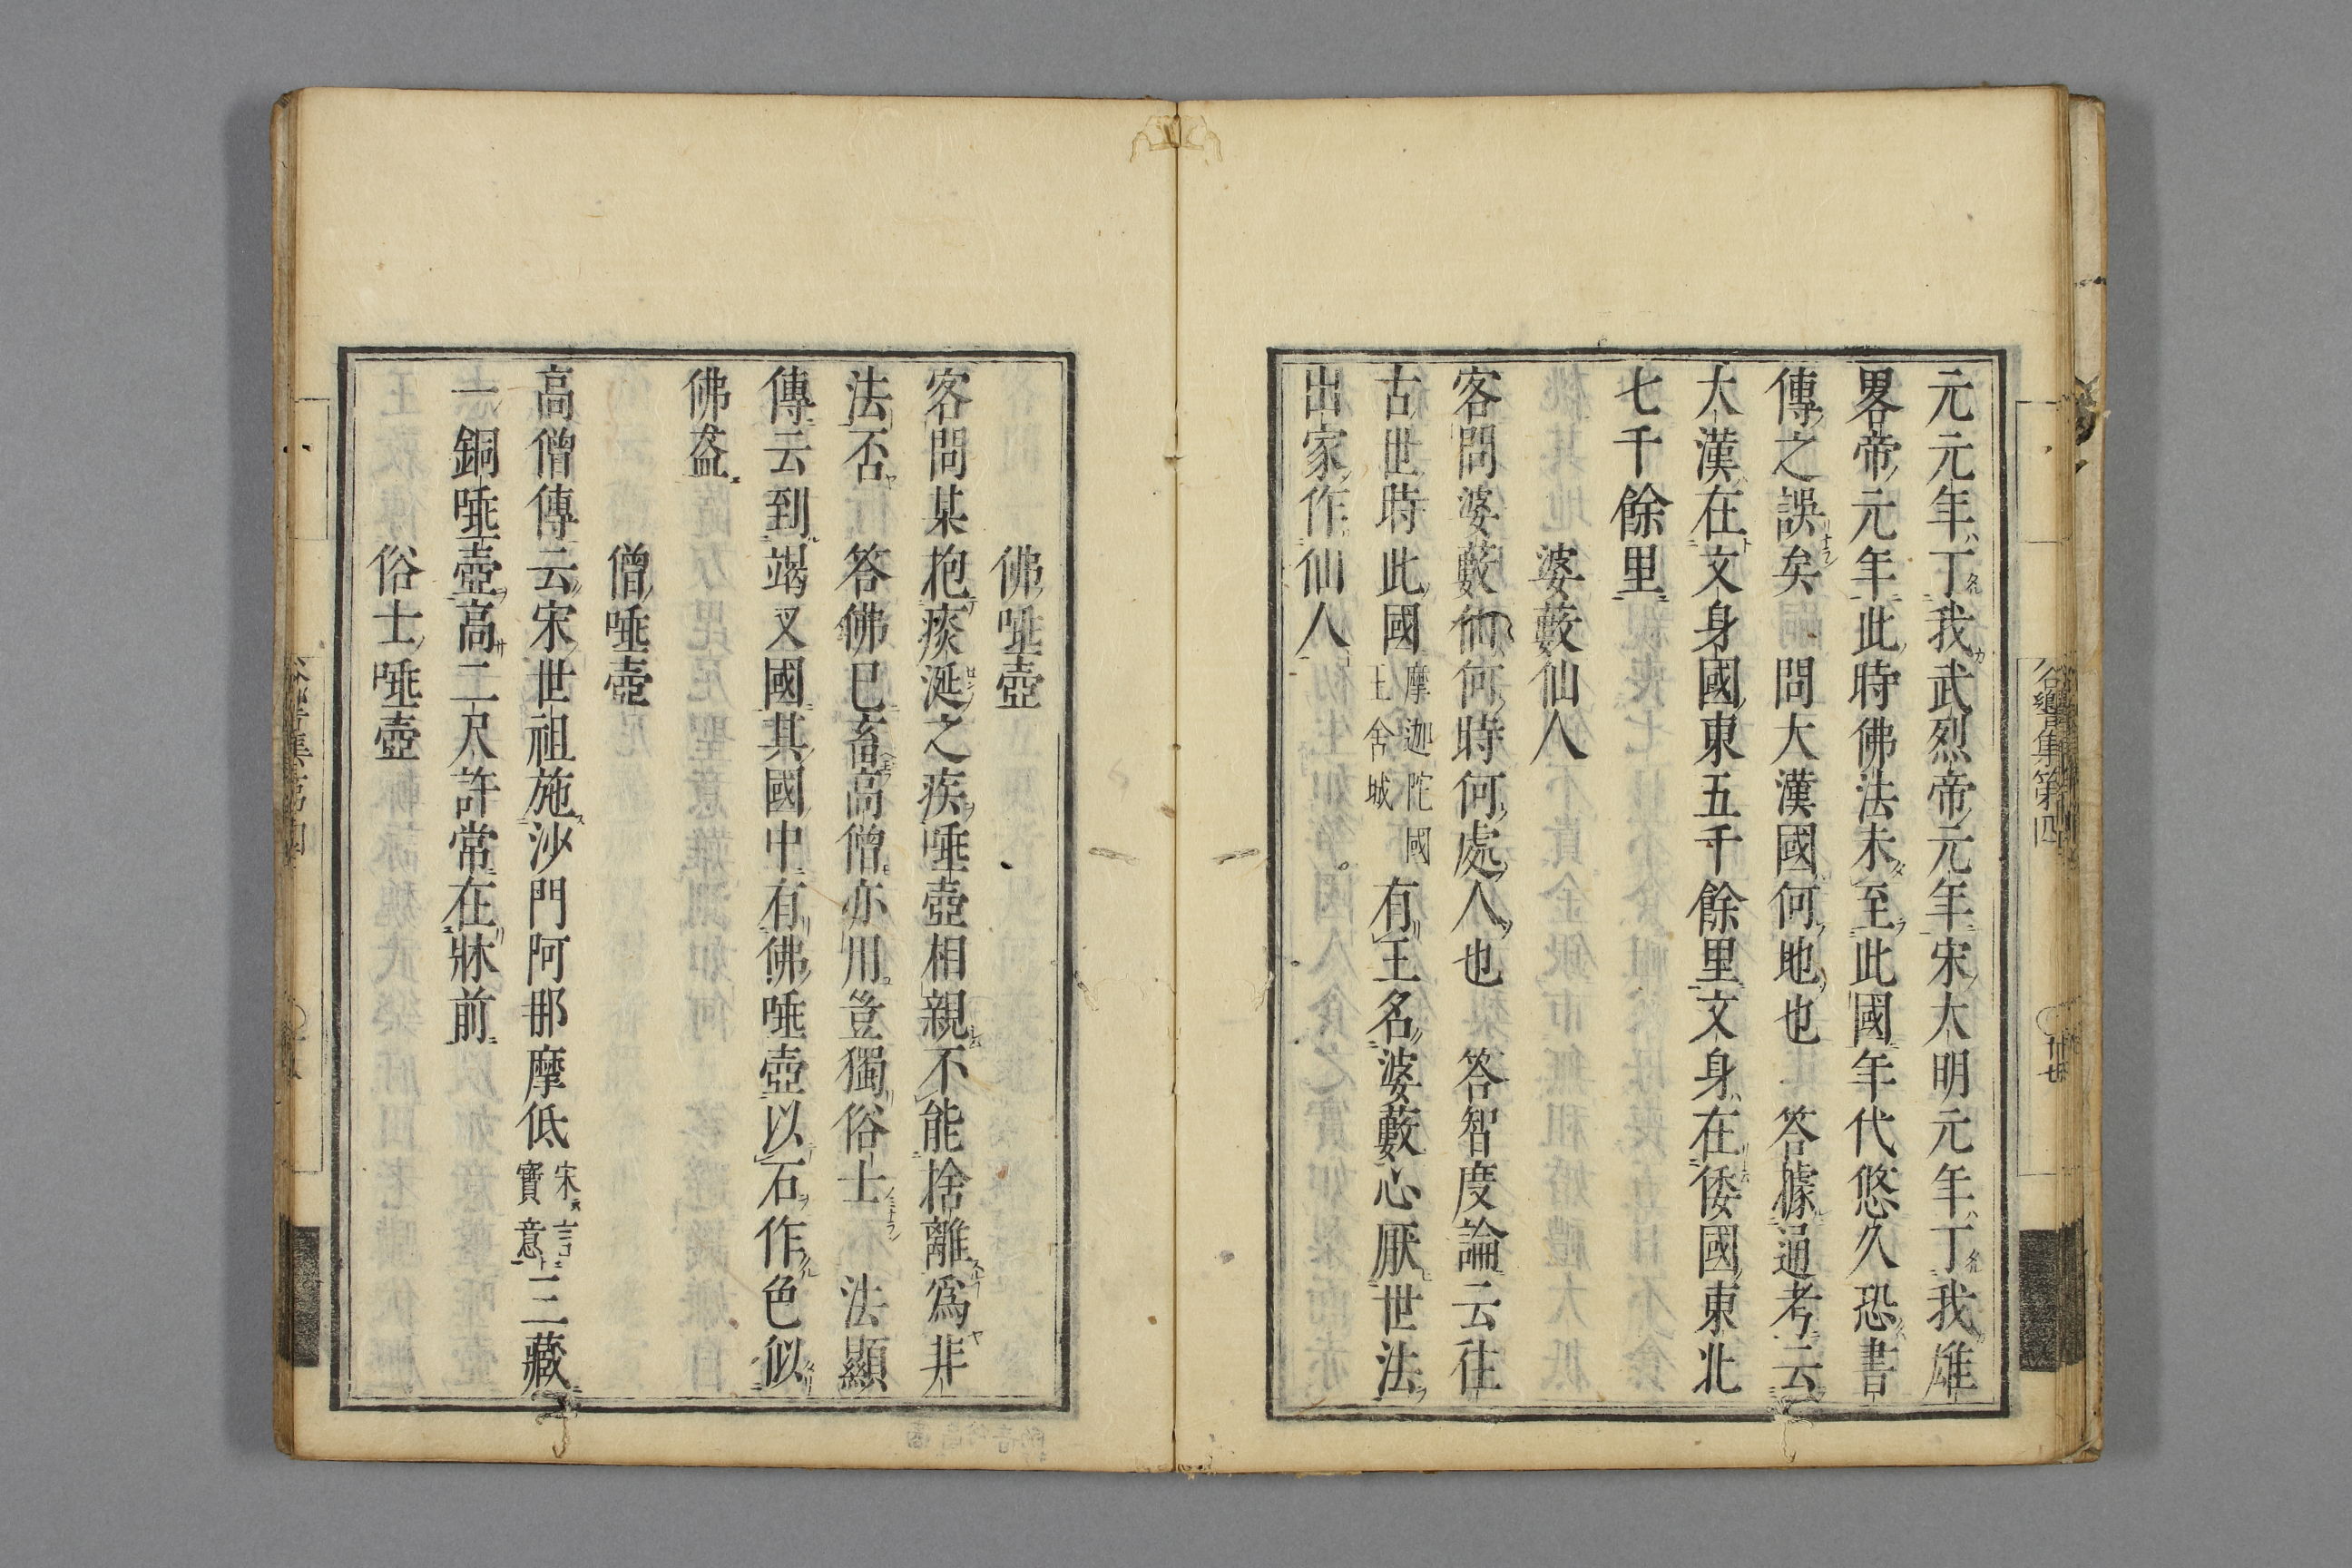 元元年丁我武烈帝元年宋大明元年丁我雄
畧帝元年此時佛法未至此國年代悠久恐書
傳之誤矣　問大漢國何地也　答據通考云
大漢在文身國東五千餘里文身在倭國東北
七千餘里
婆藪仙人
客問婆藪仙何時何處人也　答智度論云往
古世時此國摩迦陀國王舍城有王名婆藪心厭世法
出家作仙人
谷響集第四
廿七
佛唾壺
客問某抱痰涎之疾唾壺相親不能捨離爲非
法否　答佛已畜高僧亦用豈獨俗士　法顯
傳云到竭叉國其國中有佛唾壺以石作色似
佛盋
僧唾壺
高僧傳云宋世祖施沙門阿那摩低宋言寶意三藏
一銅唾壺高二尺許常在牀前
俗士唾壺